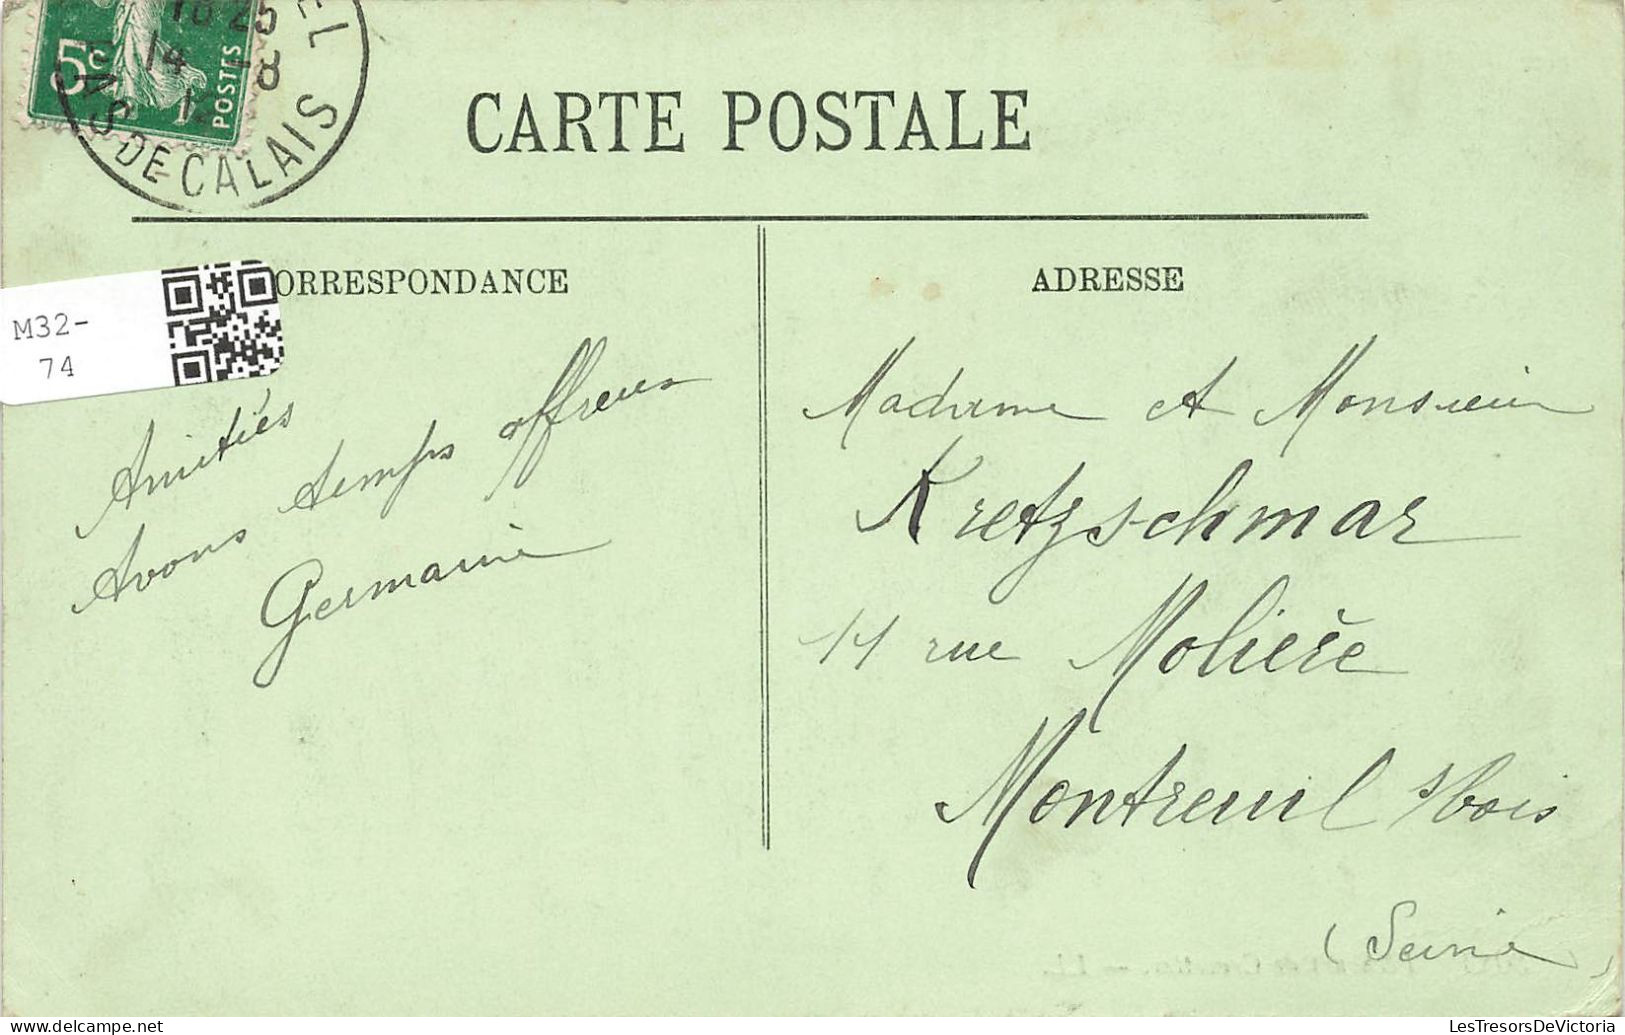 5c
POSTES
18 25
14 -8
12
PAS-DE-CALAIS
CARTE POSTALE
CORRESPONDANCE
ADRESSE
M32-
74
Amitiés
Avons temps affreux
Germaine
Madame et Monsieur
Kretzschmar
11 rue Molière
Montreuil s/bois
(Seine)
LesTresorsDeVictoria